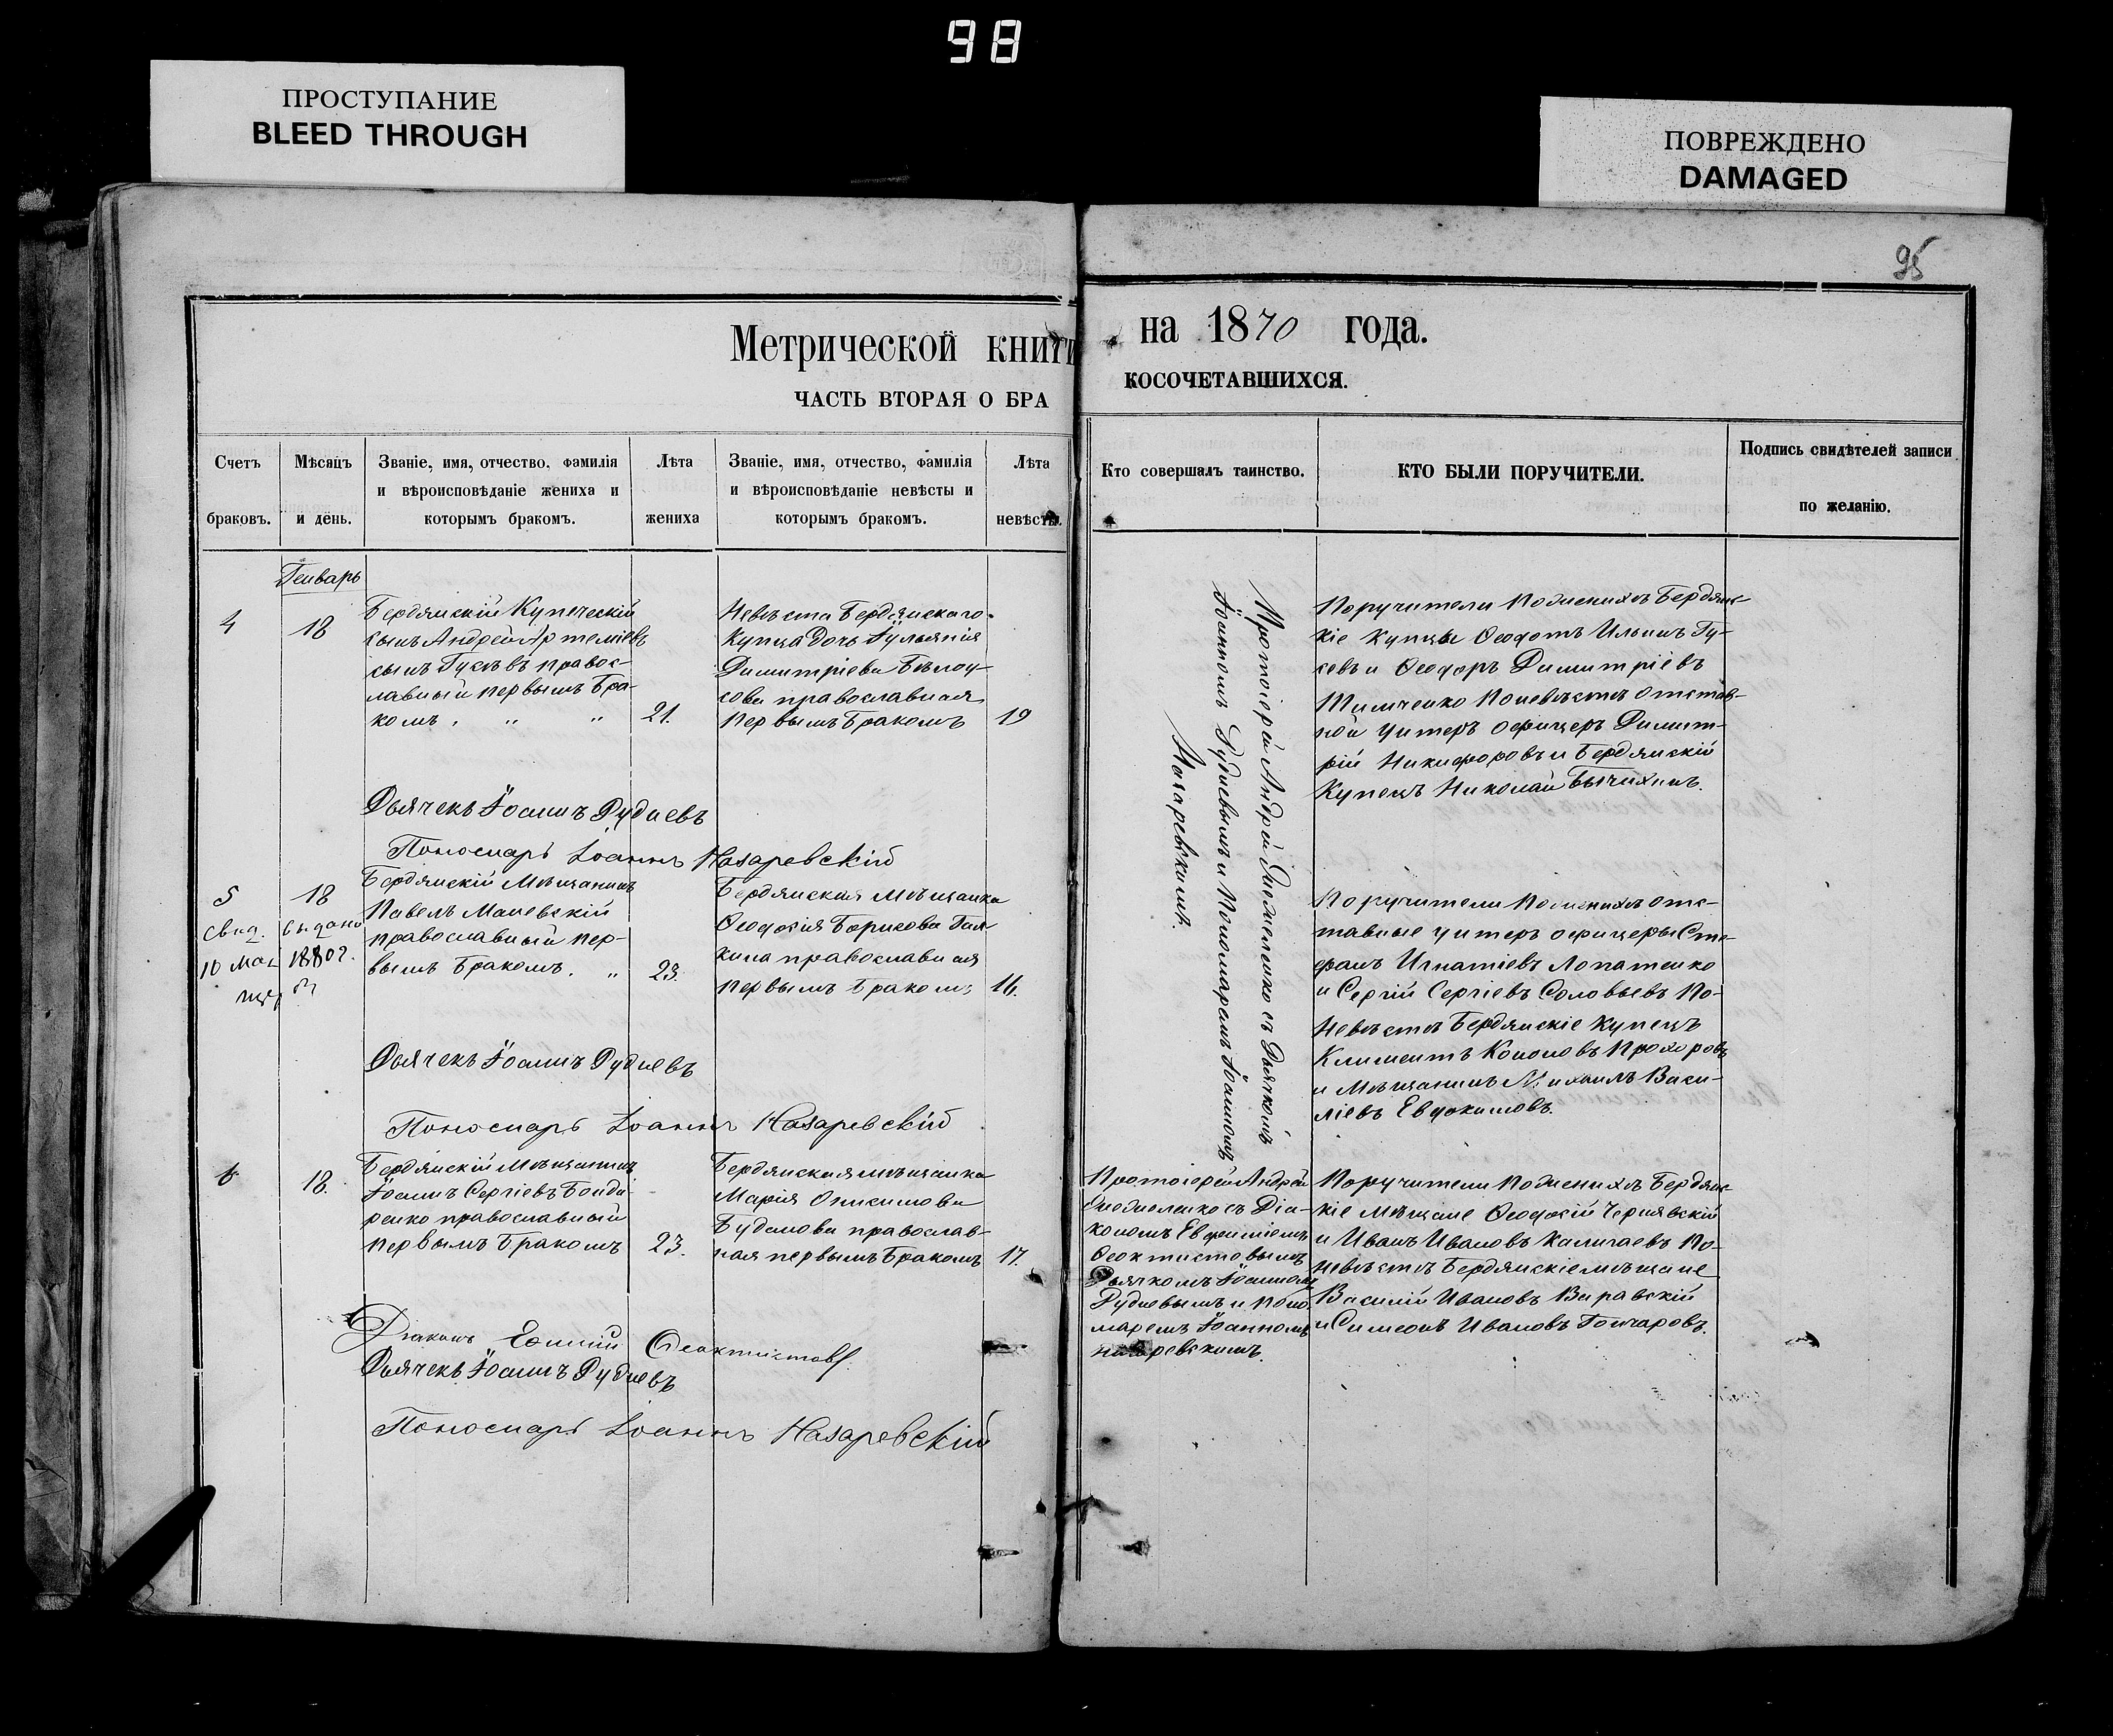 98
ПРОСТУПАНИЕ
BLEED THROUGH
ПОВРЕЖДЕНО
DAMAGED
95
Метрической книги на 1870 года.
ЧАСТЬ ВТОРАЯ О БРАКОСОЧЕТАВШИХСЯ.
Счетъ
браковъ.
Мѣсяцъ
и день.
Званіе, имя, отчество, фамилія
и вѣроисповѣданіе жениха и
которымъ бракомъ.
Лѣта
жениха
Званіе, имя, отчество, фамилія
и вѣроисповѣданіе невѣсты и
которымъ бракомъ.
Лѣта
невѣсты.
Кто совершалъ таинство.
КТО БЫЛИ ПОРУЧИТЕЛИ.
Подпись свидѣтелей записи
по желанію.
Генварь
4
18
Бердянскій Купеческій
сынъ Андрей Артеміевъ
сынъ Гусевъ правос-
лавный первымъ Бра-
комъ. " "
21.
Невѣста Бердянскаго
Купца дочь Іульянія
Димитріева Бѣлоу-
сова православная
первымъ Бракомъ
19
Протоіерей Андрей съ Дьячкомъ
Іоанномъ Рудневымъ и Пономаремъ Іоанномъ
Назаревскимъ.
Поручители по женихѣ Бердянс-
кіе купцы Ѳеодотъ Ильинъ Гу-
севъ и Ѳеодоръ Димитріевъ
Тимченко по невѣстѣ отстав-
ной унтеръ офицеръ Димит-
рій Никифоровъ и Бердянскій
Купецъ Николай Бычихинъ.
Дьячекъ Іоаннъ Рудневъ
Пономарь Іоаннъ Назаревскій
5
18
Свид. выдано
10 Мая 1880 г.
Бердянскій Мѣщанинъ
Павелъ Маневскій
православный пер-
вымъ Бракомъ. "
23.
Бердянская Мѣщанка
Ѳеодосія Борисова Гал-
кина православная
первымъ Бракомъ
16.
Поручители по женихѣ отс-
тавные унтеръ офицеры Сте-
фанъ Игнатіевъ Лопатенко
и Сергій Сергіевъ Соловьевъ по
невѣстѣ Бердянскіе Купецъ
Климентъ Кононовъ Прохоровъ
и Мѣщанинъ Михаилъ Васи-
ліевъ Евдокимовъ.
Дьячекъ Іоаннъ Рудневъ
Пономарь Іоаннъ Назаревскій
6
18.
Бердянскій Мѣщанинъ
Іоаннъ Сергіевъ Бонда
ренко православный
первымъ Бракомъ
23.
Бердянская мѣщанка
Марія Онисимова
Буданова православ-
ная первымъ Бракомъ
17.
Протоіерей Андрей
съ Діа-
кономъ Евфиміемъ
Ѳеоктистовымъ
Дьячкомъ Іоанномъ
Рудневымъ и Поно
маремъ Іоанномъ
Назаревскимъ.
Поручители по женихѣ Бердянс-
кіе мѣщане Ѳеодосій Чернявскій
и Иванъ Ивановъ Каличаевъ по
невѣстѣ Бердянскіе мѣщане
Василій Ивановъ Варавскій
и Симеонъ Ивановъ Гончаровъ.
Діаконъ Еѳимій Ѳеоктистовъ.
Дьячекъ Іоаннъ Рудневъ
Пономарь Іоаннъ Назаревскій